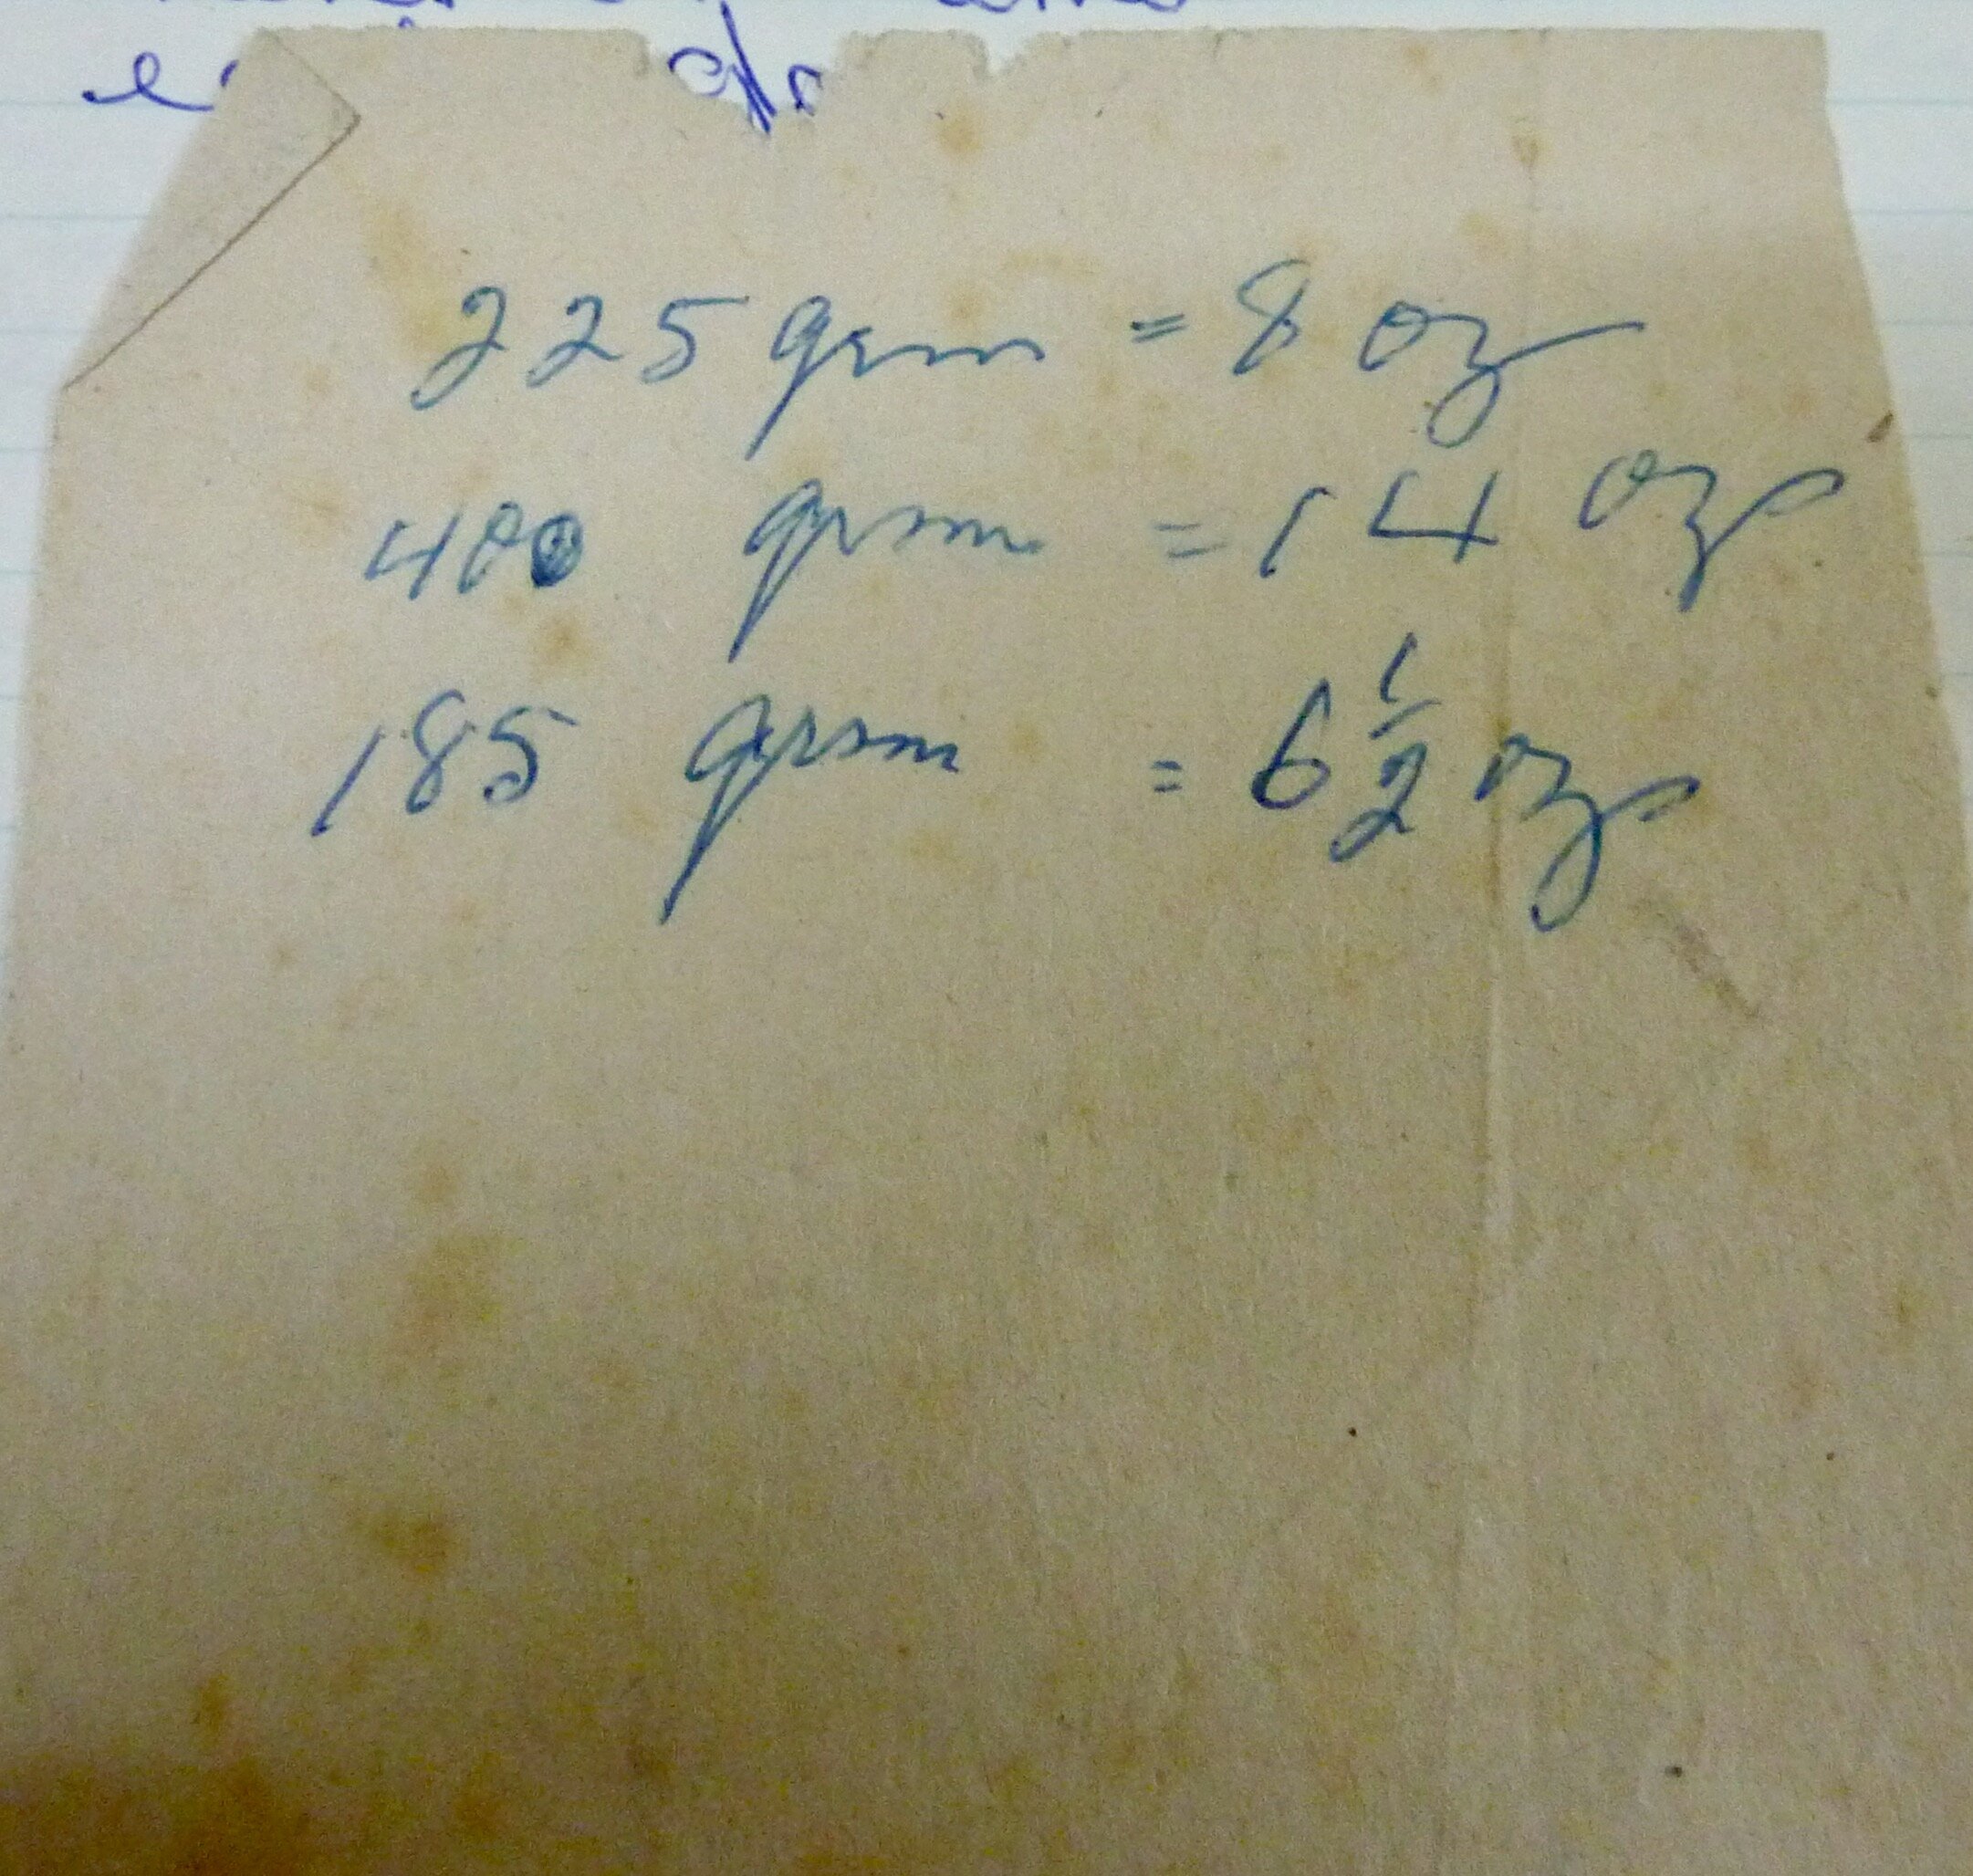 225 grm = 8 oz
400 grm = 14 ozs
185 grm = 6 1/2 ozs